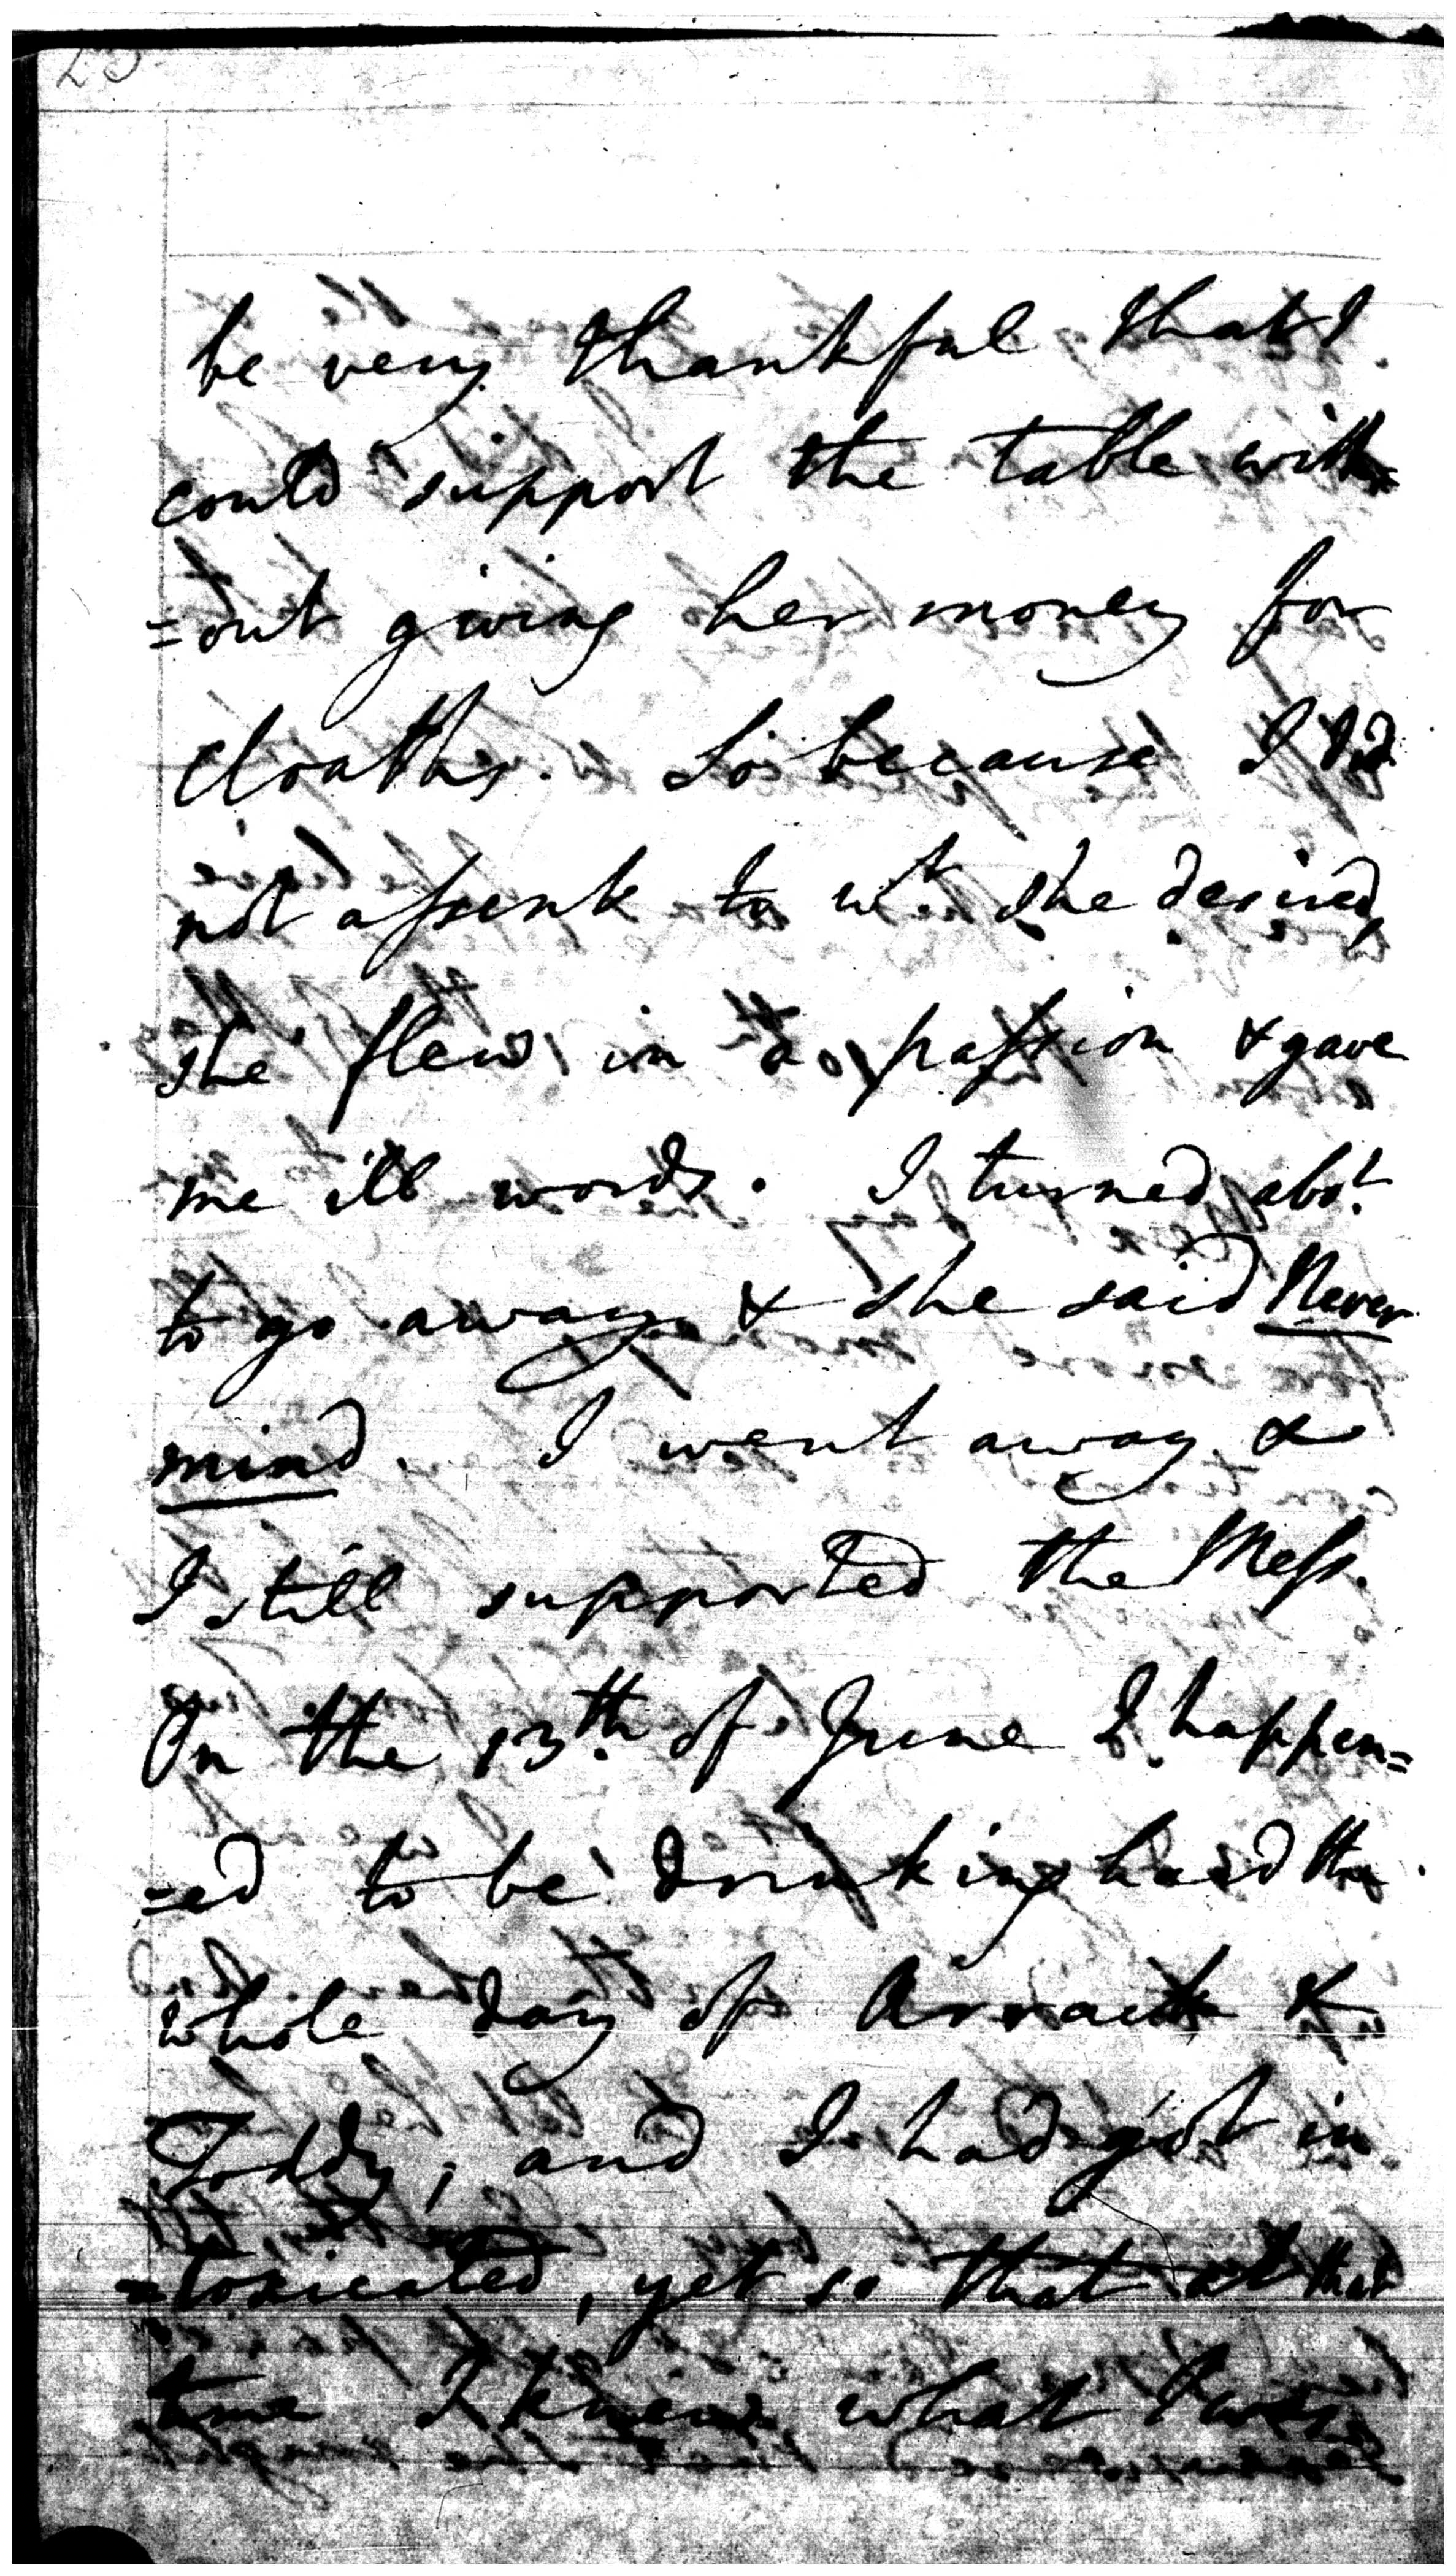 23
be very thankful that I
could support the table with=
=out giving her money for
Cloaths. So because I did
not assent to wt. she desired,
she flew in a passion & gave
me ill words. I turned abot.
to go away & she said Never
mind. I went away &
I still supported the Mess.
On the 13th. of June I happen=
=ed to be drinking hard the
whole day of Arrack &
Toddy, and I had got in
=toxicated, yet so that at that
time I knew what I was